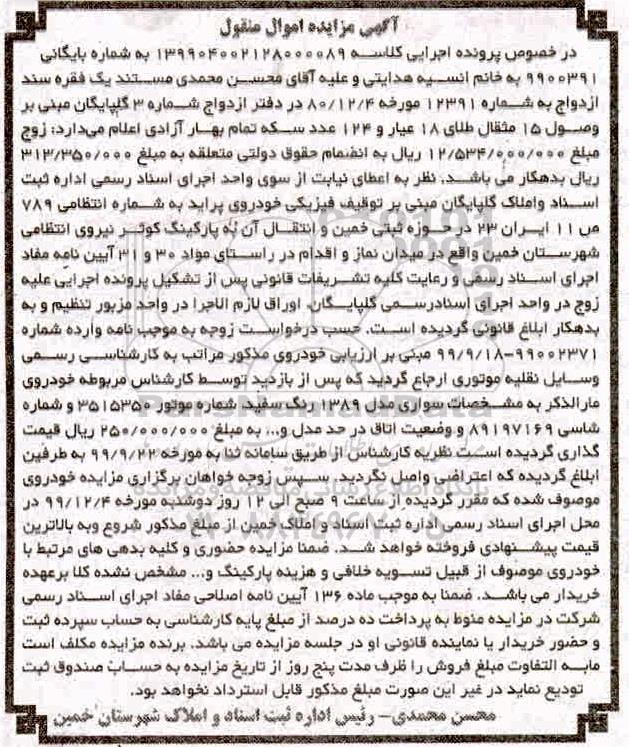 آگهی مزایده اموال منقول
در خصوص پرونده اجرایی کلاسه ۱۳۹۹۰۴۰۰۲۱۲۸۰۰۰۰۸۹ به شماره بایگانی
۹۹۰۰۳۹۱ به خانم انسیه هدایتی و علیه آقای محسن محمدی مستند یک فقره سند
ازدواج به شماره ۱۲۳۹۱ مورخه ۸۰/۱۲/۴ در دفتر ازدواج شماره ۳ گلپایگان مبنی بر
وصول ۱۵ مثقال طلای ۱۸ عیار و ۱۲۴ عدد سکه تمام بهار آزادی اعلام می‌دارد: زوج
مبلغ ۱۲/۵۳۴/۰۰۰/۰۰۰ ریال به انضمام حقوق دولتی متعلقه به مبلغ ۳۱۳/۳۵۰/۰۰۰
ریال بدهکار می باشد. نظر به اعطای نیابت از سوی واحد اجرای اسناد رسمی اداره ثبت
اسناد واملاک گلپایگان مبنی بر توقیف فیزیکی خودروی پراید به شماره انتظامی ۷۸۹
ص ۱۱ ایران ۲۳ در حوزه ثبتی خمین و انتقال آن به پارکینگ کوثر نیروی انتظامی
شهرستان خمین واقع در میدان نماز و اقدام در راستای مواد ۳۰ و ۳۱ آیین نامه مفاد
اجرای اسناد رسمی و رعایت کلیه تشریفات قانونی پس از تشکیل پرونده اجرایی علیه
زوج در واحد اجرای اسنادرسمی گلپایگان، اوراق لازم الاجرا در واحد مزبور تنظیم و به
بدهکار ابلاغ قانونی گردیده است. حسب درخواست زوجه به موجب نامه وارده شماره
۹۹۰۰۲۳۷۱-۹۹/۹/۱۸ مبنی بر ارزیابی خودروی مذکور مراتب به کارشناسی رسمی
وسایل نقلیه موتوری ارجاع گردید که پس از بازدید توسط کارشناس مربوطه خودروی
مارالذکر به مشخصات سواری مدل ۱۳۸۹ رنگ سفید، شماره موتور ۳۵۱۵۳۵۰ و شماره
شاسی ۸۹۱۹۷۱۶۹ و وضعیت اتاق در حد مدل و... به مبلغ ۲۵۰/۰۰۰/۰۰۰ ریال قیمت
گذاری گردیده است نظریه کارشناس از طریق سامانه ثنا به مورخه ۹۹/۹/۲۲ به طرفین
ابلاغ گردیده که اعتراضی واصل نگردید. سپس زوجه خواهان برگزاری مزایده خودروی
موصوف شده که مقرر گردیده از ساعت ۹ صبح الی ۱۲ روز دوشنبه مورخه ۹۹/۱۲/۴ در
محل اجرای اسناد رسمی اداره ثبت اسناد و املاک خمین از مبلغ مذکور شروع وبه بالاترین
قیمت پیشنهادی فروخته خواهد شد. ضمنا مزایده حضوری و کلیه بدهی های مرتبط با
خودروی موصوف از قبیل تسویه خلافی و هزینه پارکینگ و... مشخص نشده کلا برعهده
خریدار می باشد. ضمنا به موجب ماده ۱۳۶ آیین نامه اصلاحی مفاد اجرای اسناد رسمی
شرکت در مزایده منوط به پرداخت ده درصد از مبلغ پایه کارشناسی به حساب سپرده ثبت
و حضور خریدار یا نماینده قانونی او در جلسه مزایده می باشد. برنده مزایده مکلف است
مابه التفاوت مبلغ فروش را ظرف مدت پنج روز از تاریخ مزایده به حساب صندوق ثبت
تودیع نماید در غیر این صورت مبلغ مذکور قابل استرداد نخواهد بود.
محسن محمدی- رئیس اداره ثبت اسناد و املاک شهرستان خمین